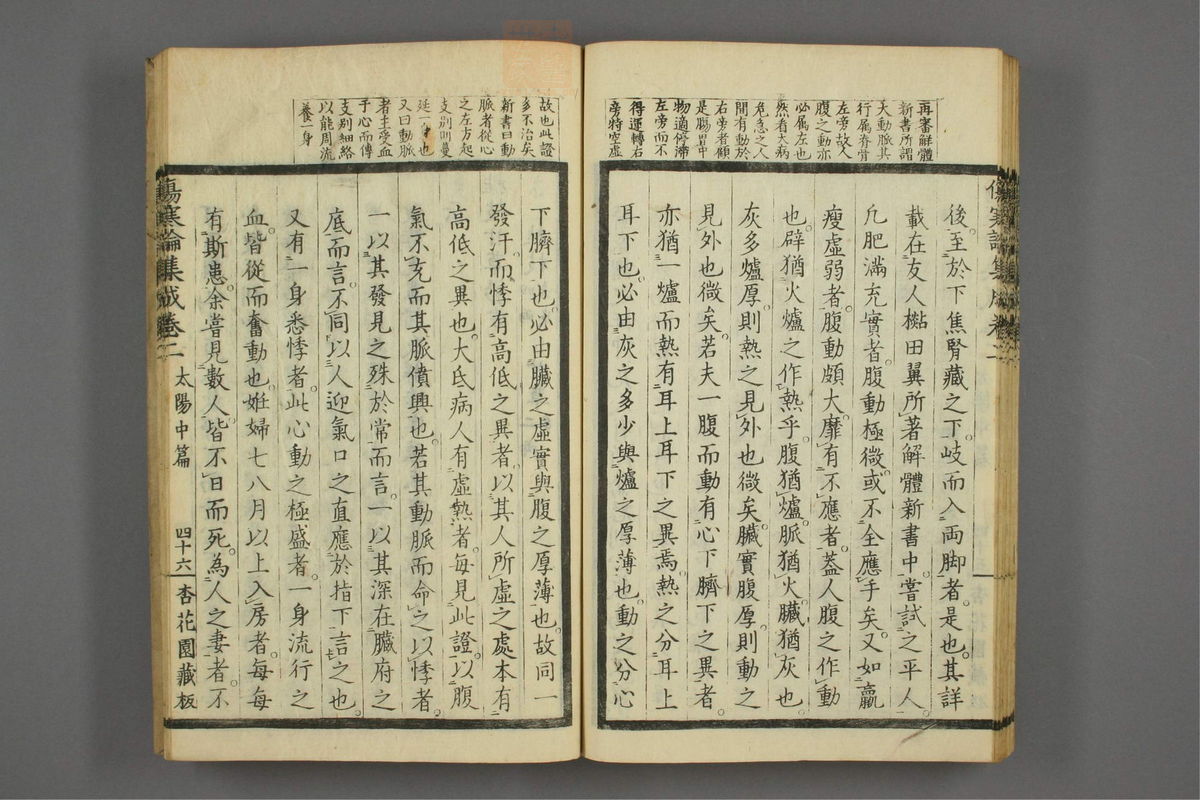 再審解體
新書所謂
大動脈其
行属脊骨
左旁故人
腹之動亦
必属左也
然看大病
危急之人
間有動於
右旁者顧
是腸胃中
物適停滞
左旁而不
得運轉右
旁特空虚
後至於下焦腎藏之下岐而入両脚者是也其詳
載在友人𣝣田翼所著解體新書中嘗試之平人
凡肥滿充實者腹動極微或不全應手矣又如羸
瘦虚弱者腹動頗大靡有不應者蓋人腹之作動
也辟猶火爐之作熱乎腹猶爐脈猶火臓猶灰也
灰多爐厚則熱之見外也微矣臓實腹厚則動之
見外也微矣若夫一腹而動有心下臍下之異者
亦猶一爐而熱有耳上耳下之異焉熱之分耳上
耳下也必由灰之多少與爐之厚薄也動之分心
故也此證
多不治矣
新書曰動
脈者從心
之左方起
支別則蔓
延一身也
又曰動脈
者主受血
于心而傳
支別細絡
以能周流
養一身
下臍下也必由臓之虚實與腹之厚薄也故同一
發汗而悸有高低之異者以其人所虚之處本有
高低之異也大氐病人有虚熱者毎見此證以腹
氣不充而其脈僨興也若其動脈而命之以悸者
一以其發見之殊於常而言一以其深在臓府之
底而言不同以人迎氣口之直應於指下言之也
又有一身悉悸者此心動之極盛者一身流行之
血皆從而奮動也姙婦七八月以上入房者毎毎
有斯患余嘗見數人皆不日而死為人之妻者不
傷寒論集成卷二 太陽中篇 四十六 杏花園藏板